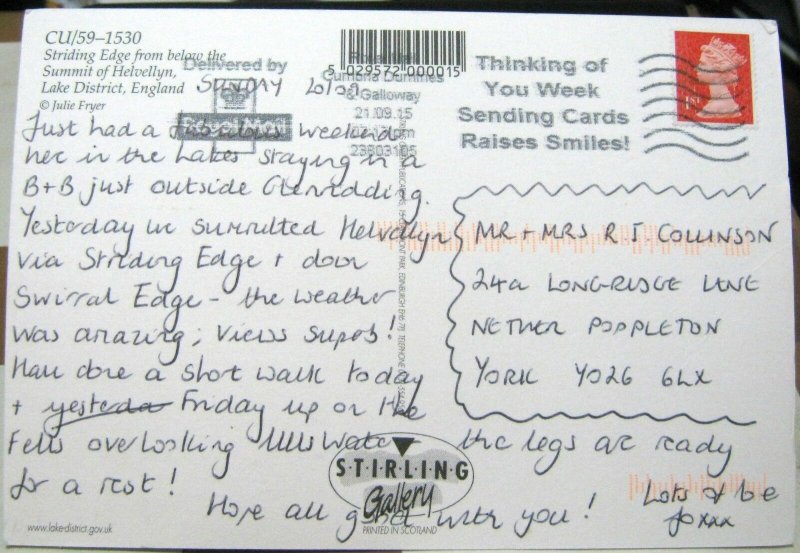 CU/59-1530
Striding Edge from below the
Summit of Helvellyn,
Lake District, England
© Julie Fryer
Delivered by
Royal Mail
5 029572 000015
Cumbria Dumfries
& Galloway
21.09.15
23803105
Thinking of
You Week
Sending Cards
Raises Smiles!
1ST
SUNDAY
Just had a fabulous weekend
here in the Lakes staying in a
B+B just outside Glenridding.
Yesterday we summitted Helvellyn
via Striding Edge + down
Swirral Edge - the weather
was amazing; views superb!
Have done a short walk today
+ yesterda Friday up on the
Fells overlooking Ullswater the legs are ready
for a rest!
Hope all good with you!
Lots of love
Jo xxx
MR + MRS R J COLLINSON
24a LONGRIDGE LANE
NETHER POPPLETON
YORK YO26 6LX
STIRLING
Gallery
PRINTED IN SCOTLAND
www.lake-district.gov.uk